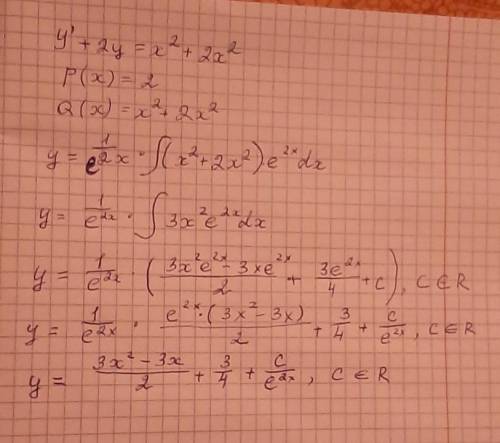 y' + 2y = x² + 2x²
P(x) = 2
Q(x) = x² + 2x²
y = 1/e^2x · ∫(x² + 2x²)·e^2x dx
y = 1/e^2x · ∫ 3x² e^2x dx
y = 1/e^2x · ( (3x² e^2x - 3x e^2x)/2 + 3e^2x/4 + c ), C ∈ R
y = 1/e^2x · e^2x·(3x² - 3x)/2 + 3/4 + c/e^2x, C ∈ R
y = (3x² - 3x)/2 + 3/4 + c/e^2x, C ∈ R